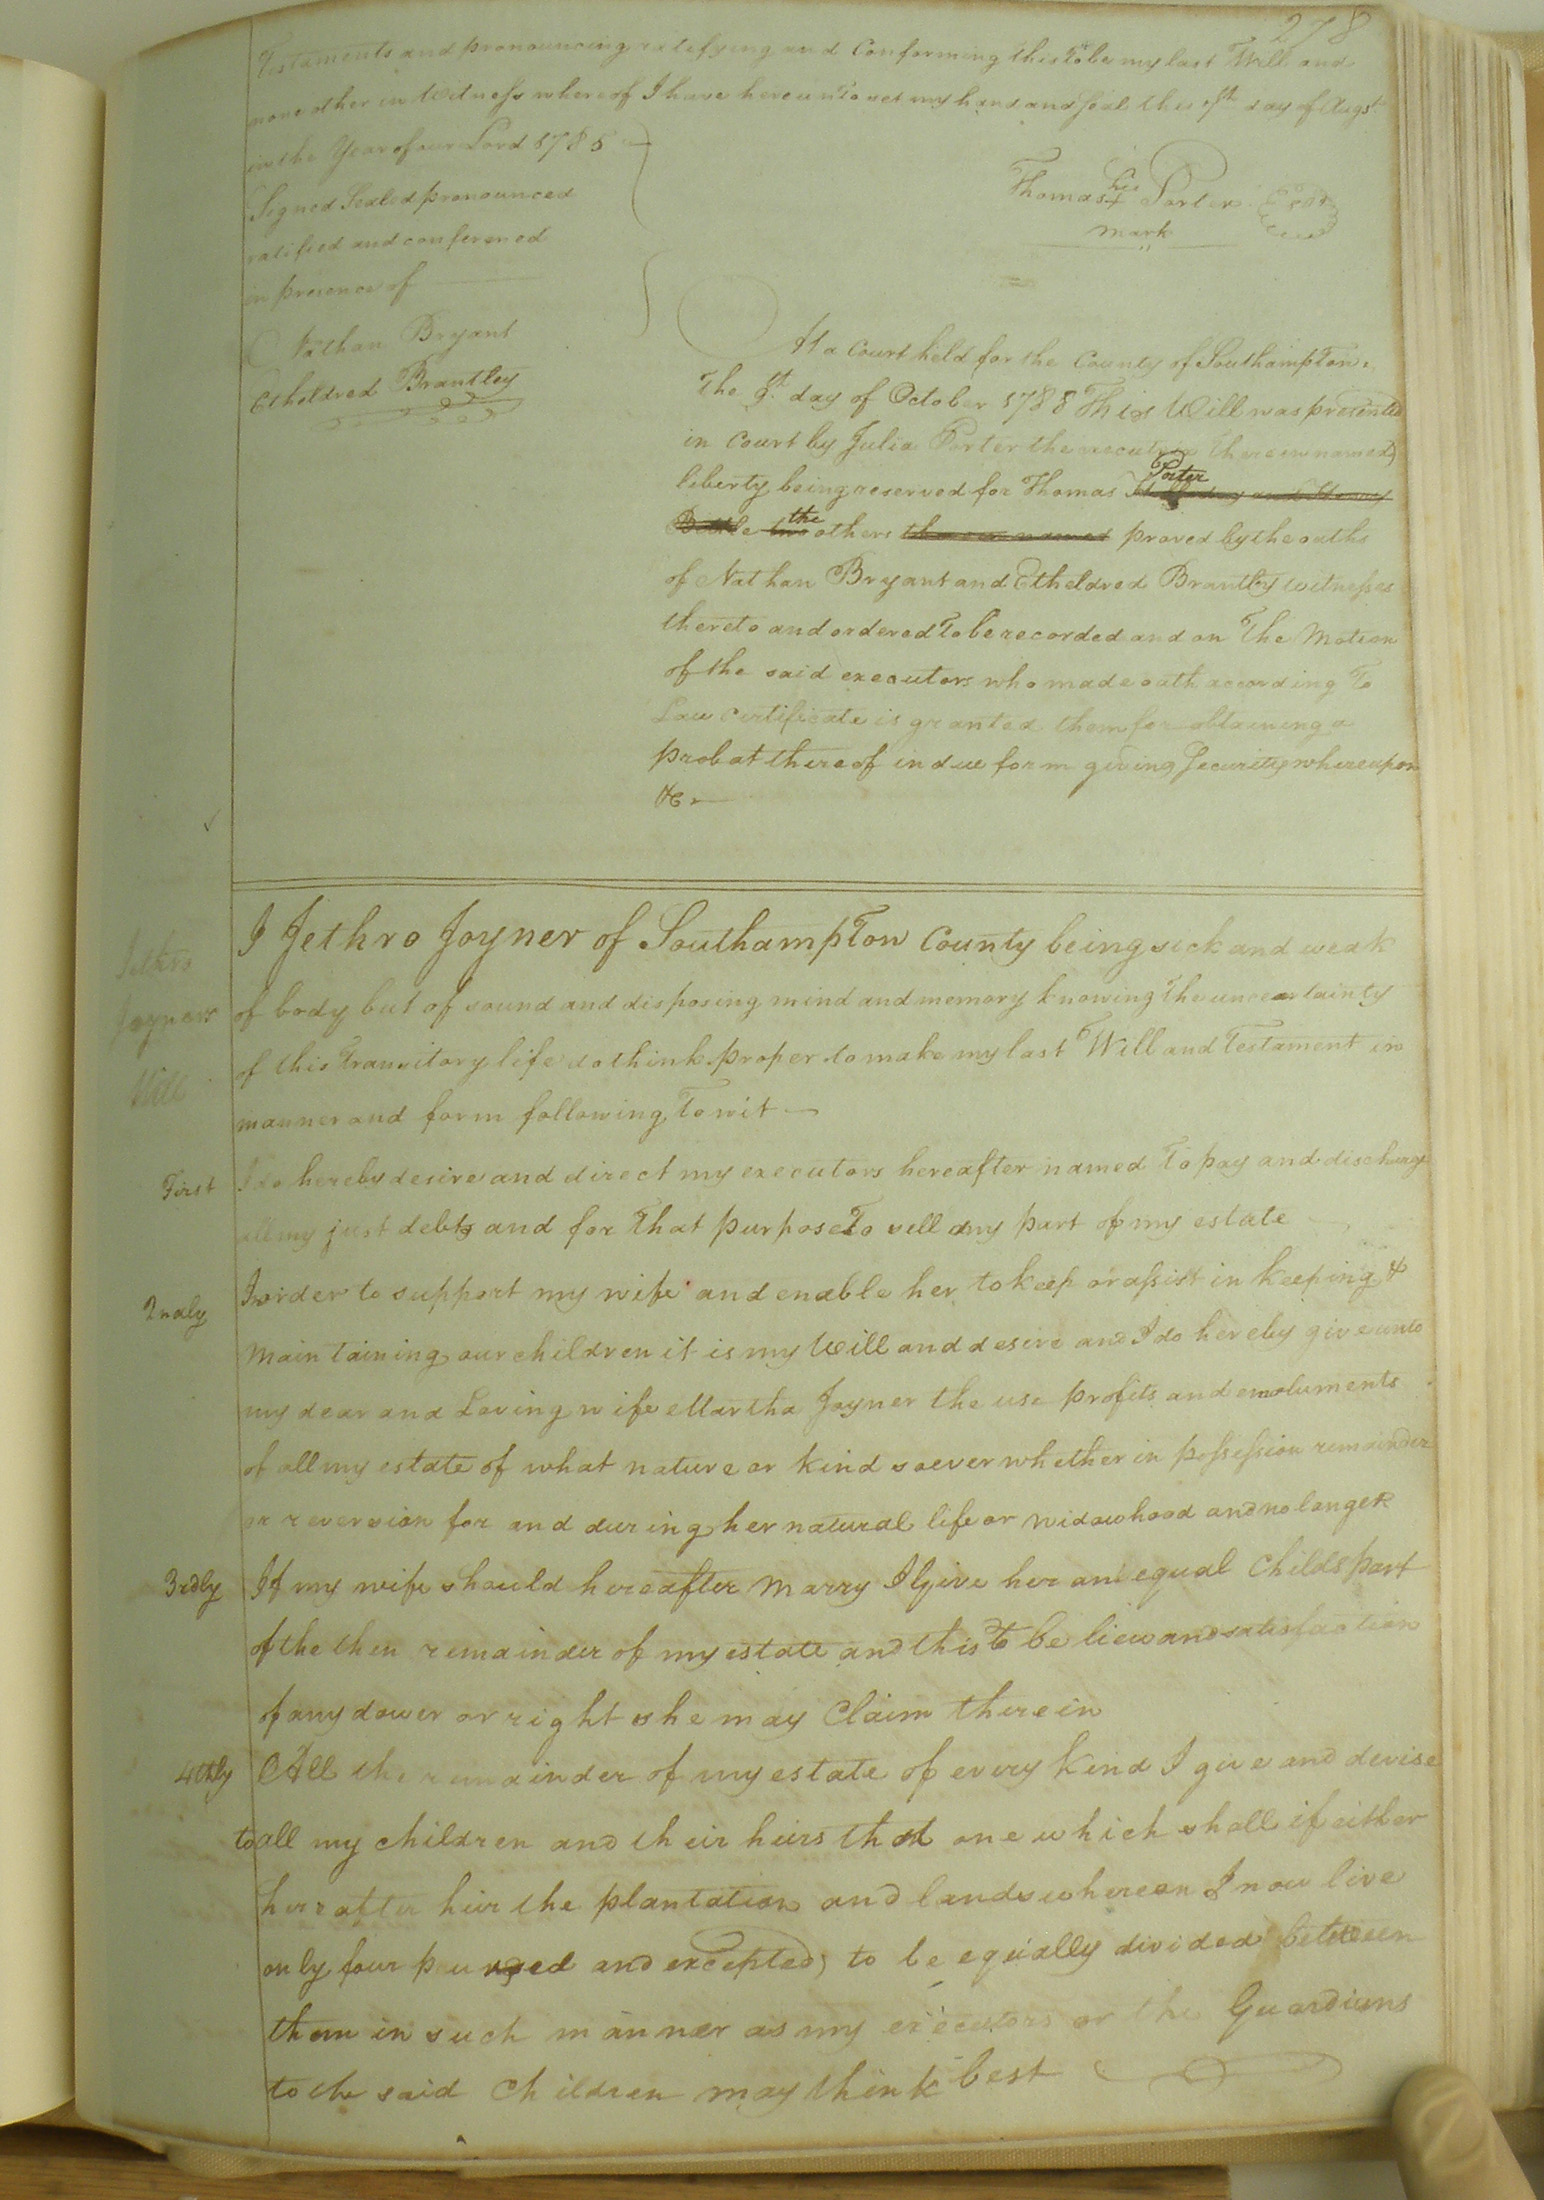 278
Testaments and pronouncing ratifying and Conforming this to be my last Will and
none other in Witness whereof I have hereunto set my hand and seal this 1st day of Augst
in the Year of our Lord 1785
Signed Sealed pronounced
ratified and conferened
in presence of
Nathan Bryant
Etheldred Brantley
his
Thomas + Porter Seal
mark
At a Court held for the County of Southampton
The 9th day of October 1788 This Will was presented
in Court by Julia Porter the executrix therein named
liberty being reserved for Thomas Porter
the others proved by the oaths
of Nathan Bryant and Etheldred Brantley witnesses
thereto and ordered To be recorded and on The Motion
of the said executors who made oath according To
Law certificate is granted them for obtaining a
probat thereof in due form giving Security whereupon
&c
Jethro
Joyners
Will
I Jethro Joyner of Southampton County being sick and weak
of body but of sound and disposing mind and memory knowing The uncertainty
of this Transitory life do think proper to make my last Will and Testament in
manner and form following To wit
First I do hereby desire and direct my executors hereafter named To pay and discharge
all my just debts and for That purpose To sell any part of my estate
2ndly In order to support my wife and enable her to keep or assist in keeping &
Maintaining our children it is my Will and desire and I do hereby give unto
my dear and Loving wife Martha Joyner the use profits and emoluments
of all my estate of what nature or kind soever whether in possession remainder
or reversion for and during her natural life or widowhood and no longer
3rdly If my wife should hereafter Marry I Give her an equal Childs part
of the then remainder of my estate and this To be liew and satisfaction
of any dower or right she may Claim therein
4thly All the remainder of my estate of every kind I give and devise
to all my children and their heirs that one which shall if either
hereafter heir the plantation and lands whereon I now live
only four and excepted) to be equally divided between
them in such manner as my executors or the Guardians
to the said Children may think best